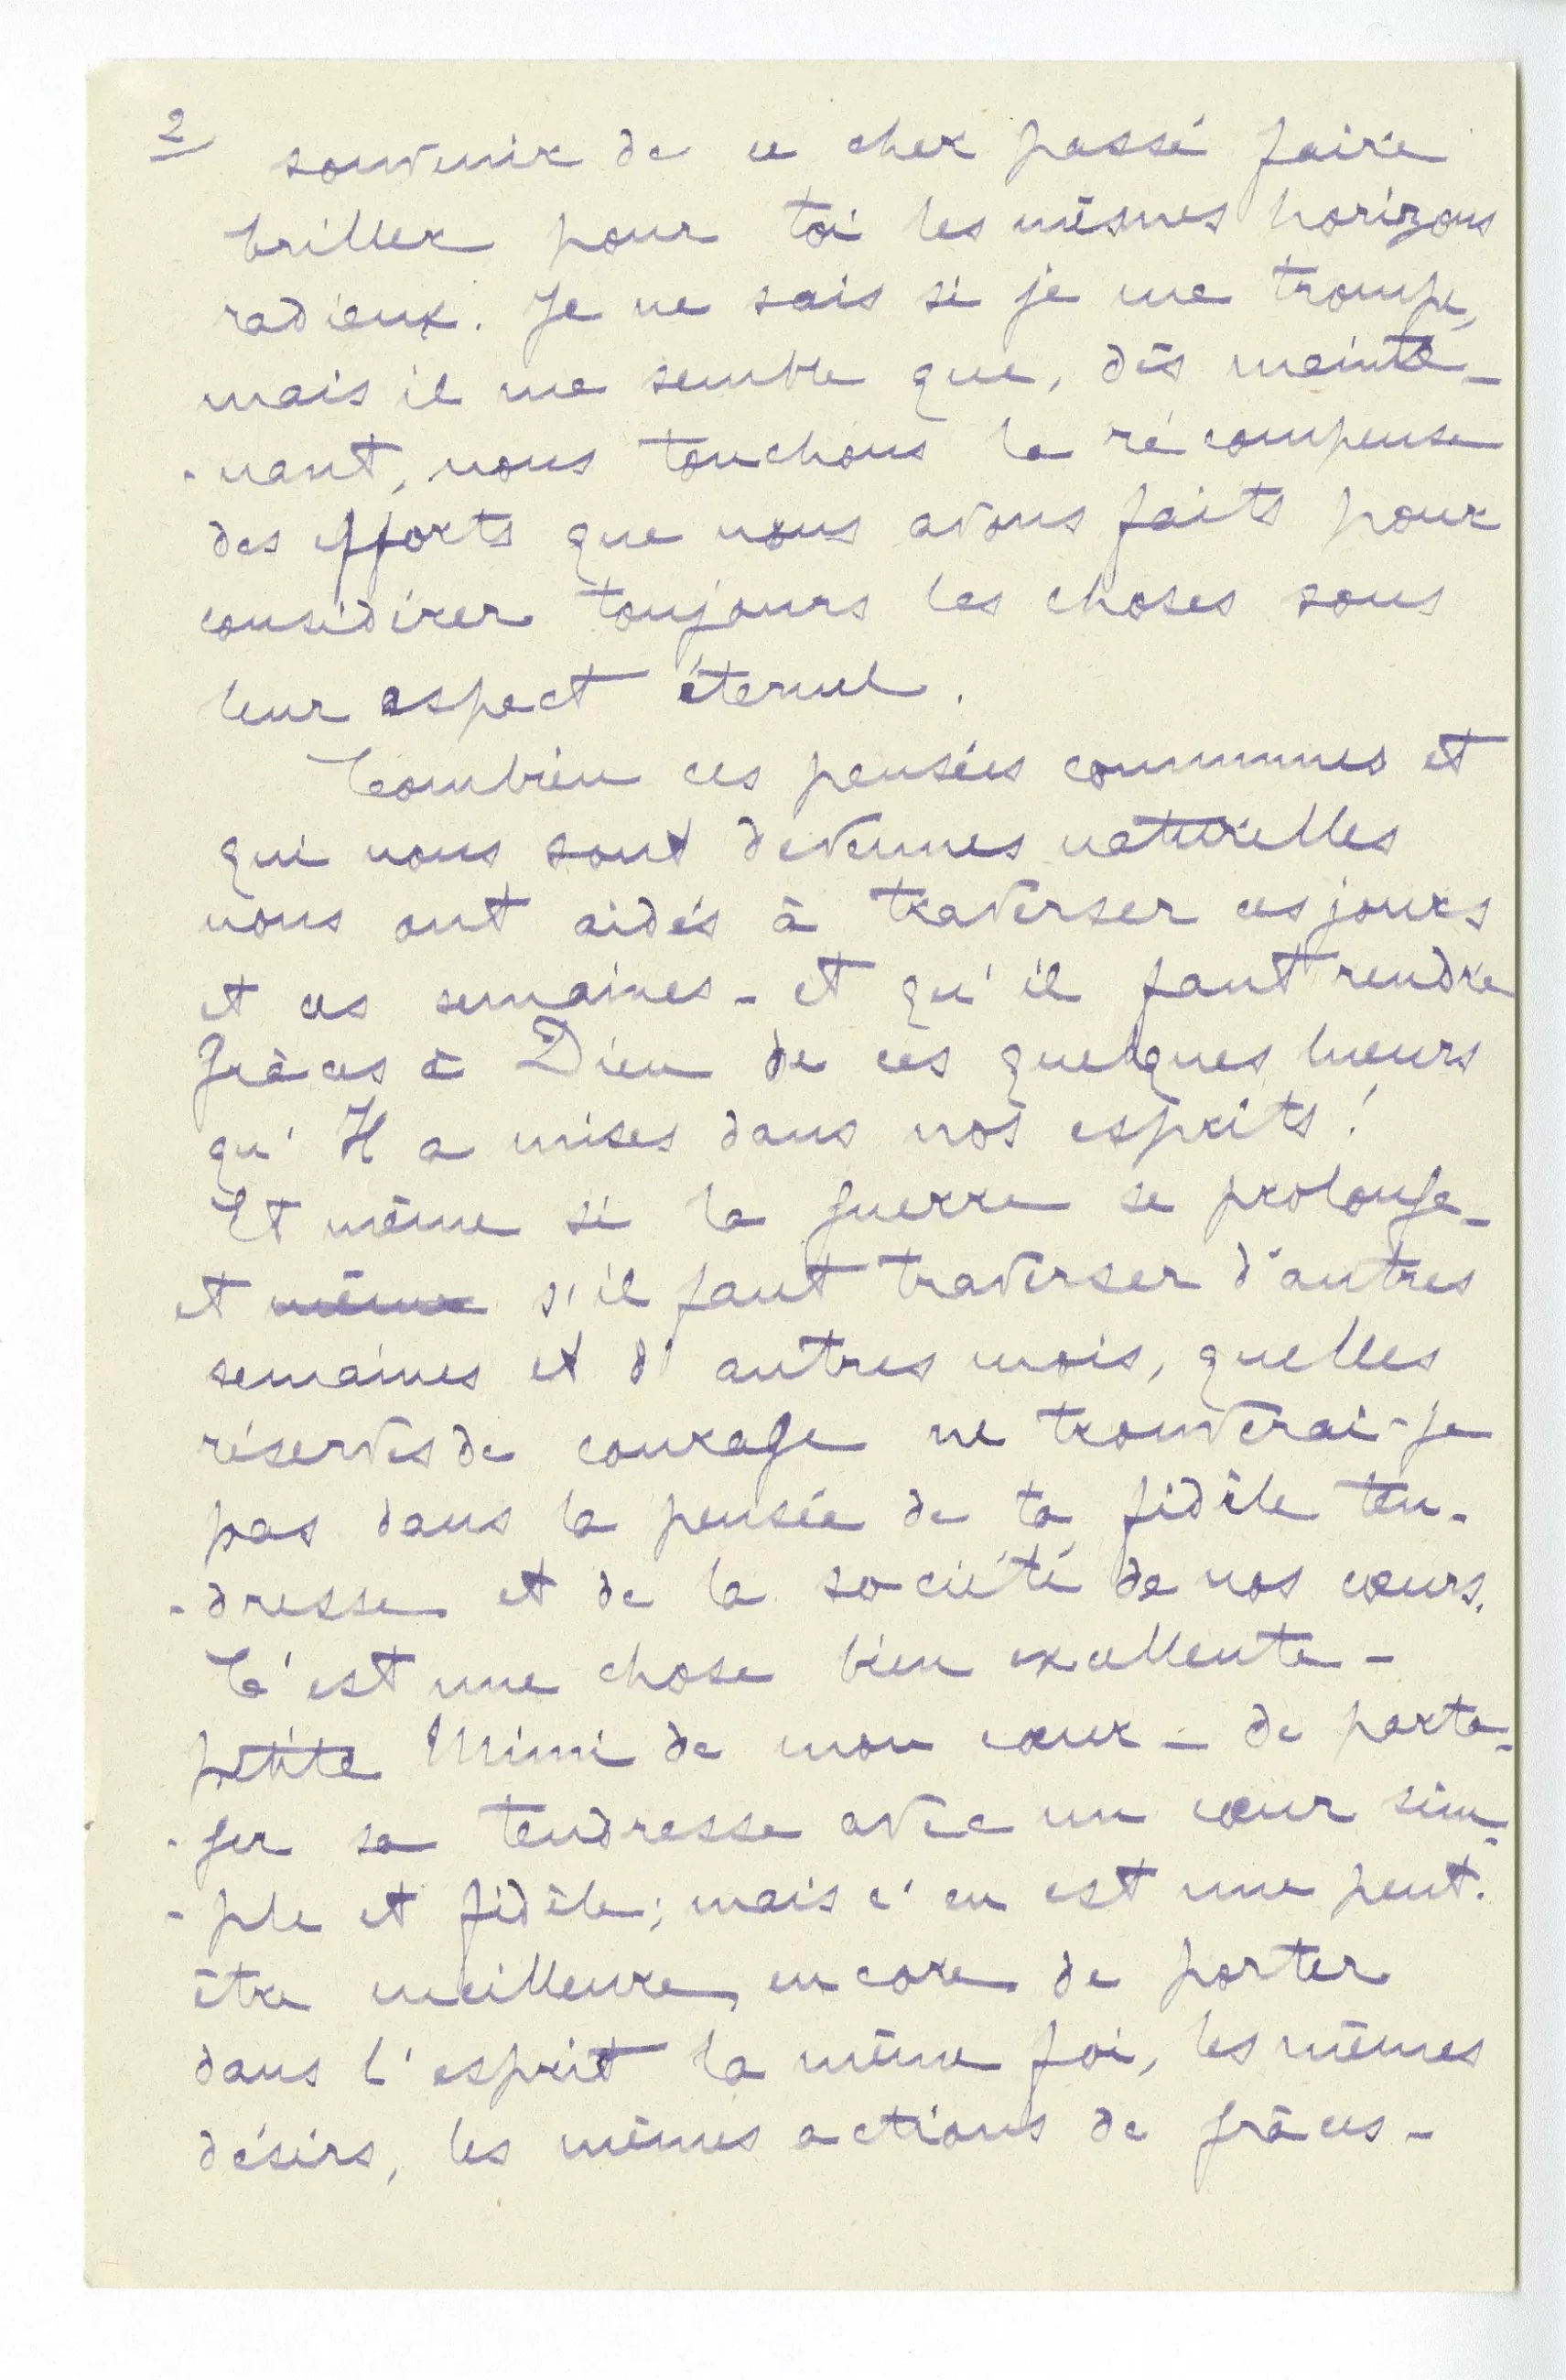 2
souvenir de ce cher passé faire
briller pour toi les mêmes horizons
radieux. Je ne sais si je me trompe,
mais il me semble que, dès mainte-
-nant, nous touchons la récompense
des efforts que nous avons faits pour
considérer toujours les choses sous
leur aspect éternel.
Combien ces pensées communes et
qui nous sont devenues naturelles
nous ont aidés à traverser ces jours
et ces semaines - et qu'il faut rendre
grâces à Dieu de ces quelques lueurs
qu'Il a mises dans nos esprits !
Et même si la guerre se prolonge -
et même s'il faut traverser d'autres
semaines et d'autres mois, quelles
réserves de courage ne trouverai-je
pas dans la pensée de ta fidèle ten-
-dresse et de la société de nos cœurs.
C'est une chose bien excellente -
petite Mimi de mon cœur - de parta-
-ger sa tendresse avec un cœur sim-
-ple et fidèle ; mais c'en est une peut-
être meilleure encore de porter
dans l'esprit la même foi, les mêmes
désirs, les mêmes actions de grâces -